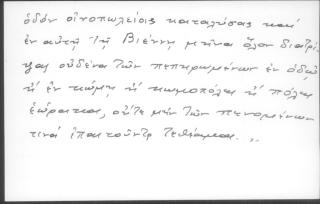 ὁδόν οἰνοπωλείοις καταλύσας καί
ἐν αὐτῇ τῇ Βιέννῃ μῆνα ὅλον διατρί-
ψας οὐδένα τῶν πεπηρωμένων ἐν ὁδῷ
ἢ ἐν κώμῃ ἢ κωμοπόλει ἢ πόλει
ἑώρακα, οὔτε μήν τῶν πενομένων
τινά ἐπαιτοῦντα τεθέαμαι.